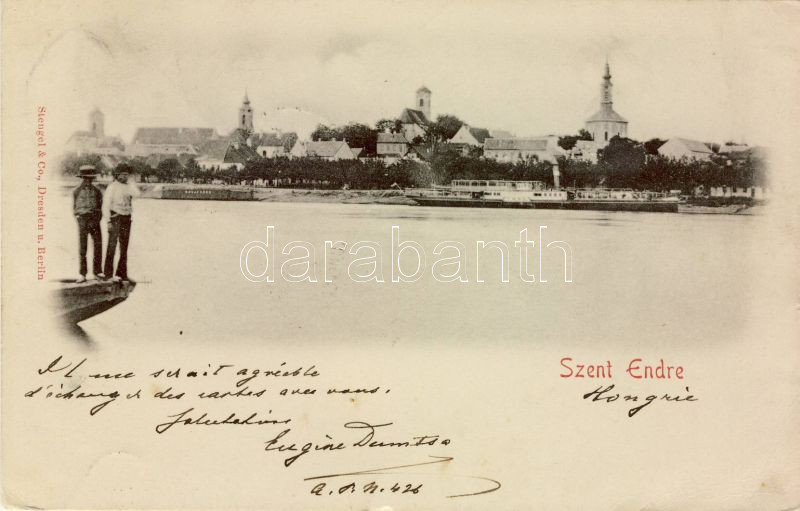 Stengel & Co., Dresden u. Berlin
darabanth
Szent Endre
Hongrie
Il me serait agréable
d'échanger des cartes avec vous.
Salutations
Eugène
A. P. N. 426